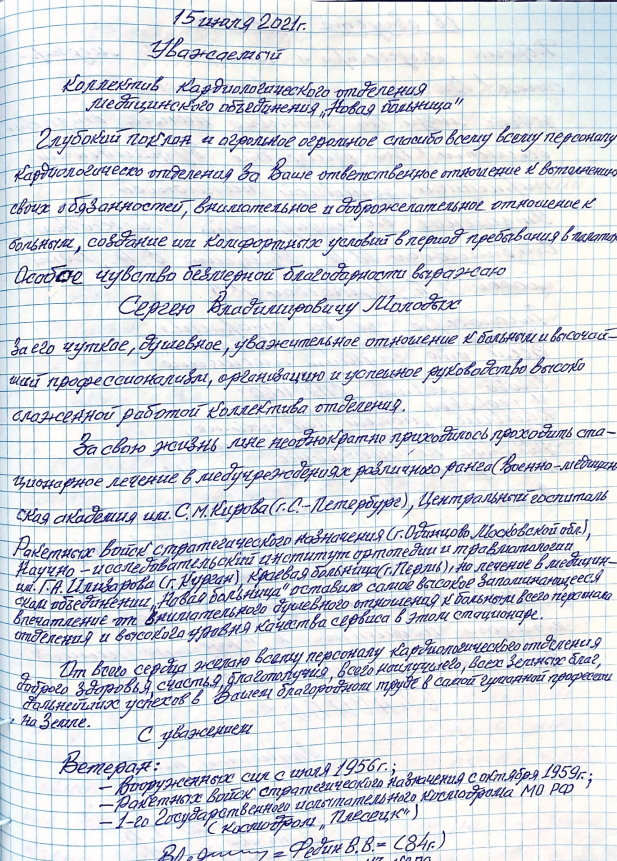 15 июля 2021г.
Уважаемый
Коллектив кардиологического отделения
медицинского объединения „Новая больница"
Глубокий поклон и огромное огромное спасибо всему всему персоналу
кардиологическо отделения за Ваше ответственное отношение к выполнению
своих обязанностей, внимательное и доброжелательное отношение к
больным, создание им комфортных условий в период пребывания в палатах
Особое чувство безмерной благодарности выражаю
Сергею Владимировичу Молодых
За его чуткое, душевное, уважительное отношение к больным и высочай-
ший профессионализм, организацию и успешное руководство высоко
слаженной работой коллектива отделения.
За свою жизнь мне неоднократно приходилось проходить ста-
ционарное лечение в медучреждениях различного ранга (Военно-медицин
ская академия им. С.М. Кирова (г.С.-Петербург), Центральный госпиталь
Ракетных войск стратегического назначения (г.Одинцово Московской обл),
Научно-исследовательский институт ортопедии и травматологии
им. Г.А. Илизарова (г.Курган), Краевая больница (г.Пермь), но лечение в медицин-
ском объединении „Новая больница" оставило самое высокое запоминающееся
впечатление от внимательного душевного отношения к больным всего персонала
отделения и высокого уровня качества сервиса в этом стационаре.
От всего сердца желаю всему персоналу кардиологического отделения
доброго здоровья, счастья, благополучия, всего наилучшего, всех земных благ,
дальнейших успехов в Вашем благородном труде в самой гуманной профессии
на Земле.
С уважением
Ветеран:
– Вооруженных сил с июля 1956г.;
– Ракетных войск стратегического назначения с октября 1959г;
– 1-го Государственного испытательного космодрома МО РФ
(космодром „Плесецк")
= Федин В.В. = (84г.)